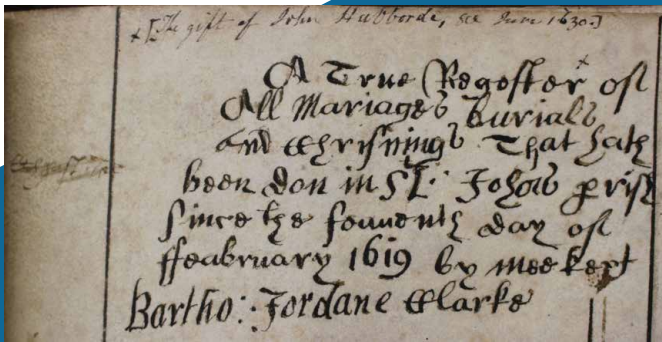 x [The gift of John Hubborde, see June 1630.]
A True Regester x of
All Mariages burials
And Chrisnings That hath
been don in St: Johns prish
Since the seauenth day of
ffeabruary 1619 by mee kept
Bartho: Jordane Clarke